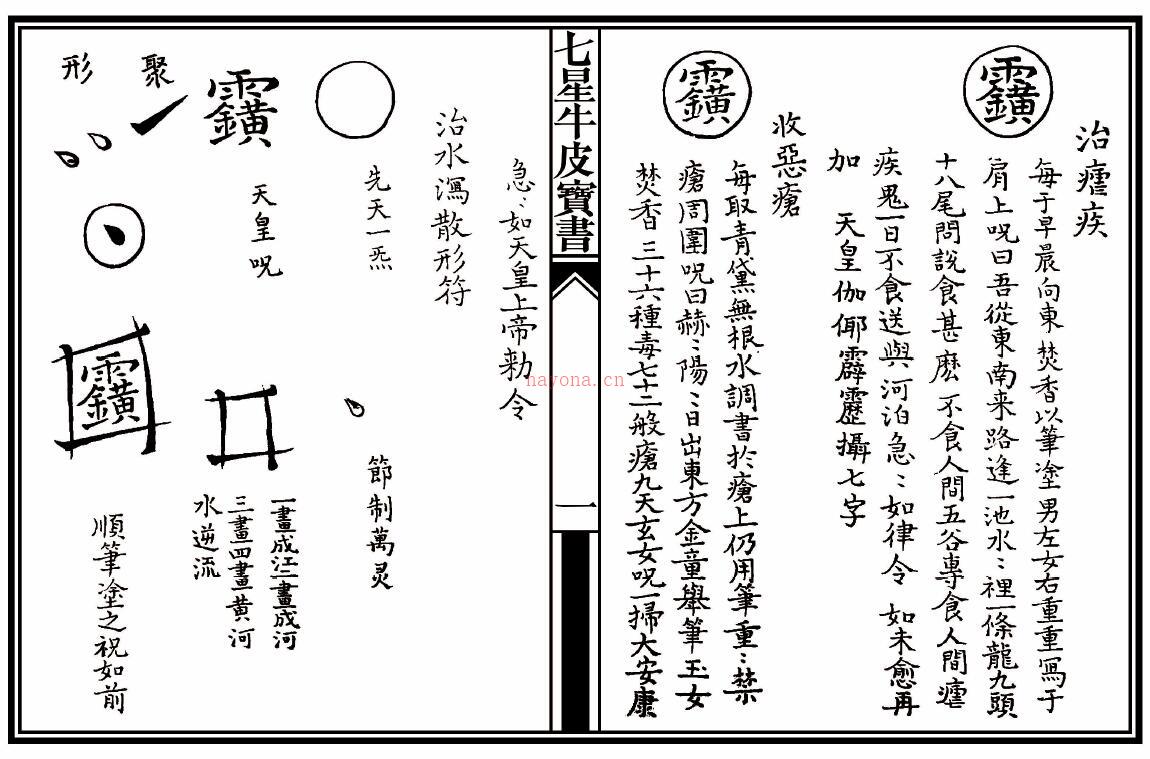 治瘧疾
每于早晨向東焚香以筆塗男左女右重重寫于
肩上咒曰吾從東南来路逢一池水〻裡一條龍九頭
十八尾問說食甚麽不食人間五谷專食人間瘧
疾鬼一日不食送與河泊急〻如律令 如未愈再
加 天皇伽倻霹靂攝七字
收惡瘡
每取青黛無根水調書於瘡上仍用筆重〻禁
瘡周圍咒曰赫〻陽〻日出東方金童舉筆玉女
焚香三十六種毒七十二般瘡九天玄女咒一掃大安康
七星牛皮寶書
一
急〻如天皇上帝勅令
治水瀉散形符
先天一炁
節制萬灵
天皇咒
一畫成江二畫成河
三畫四畫黄河
水逆流
聚
形
順筆塗之祝如前
hayona.cn